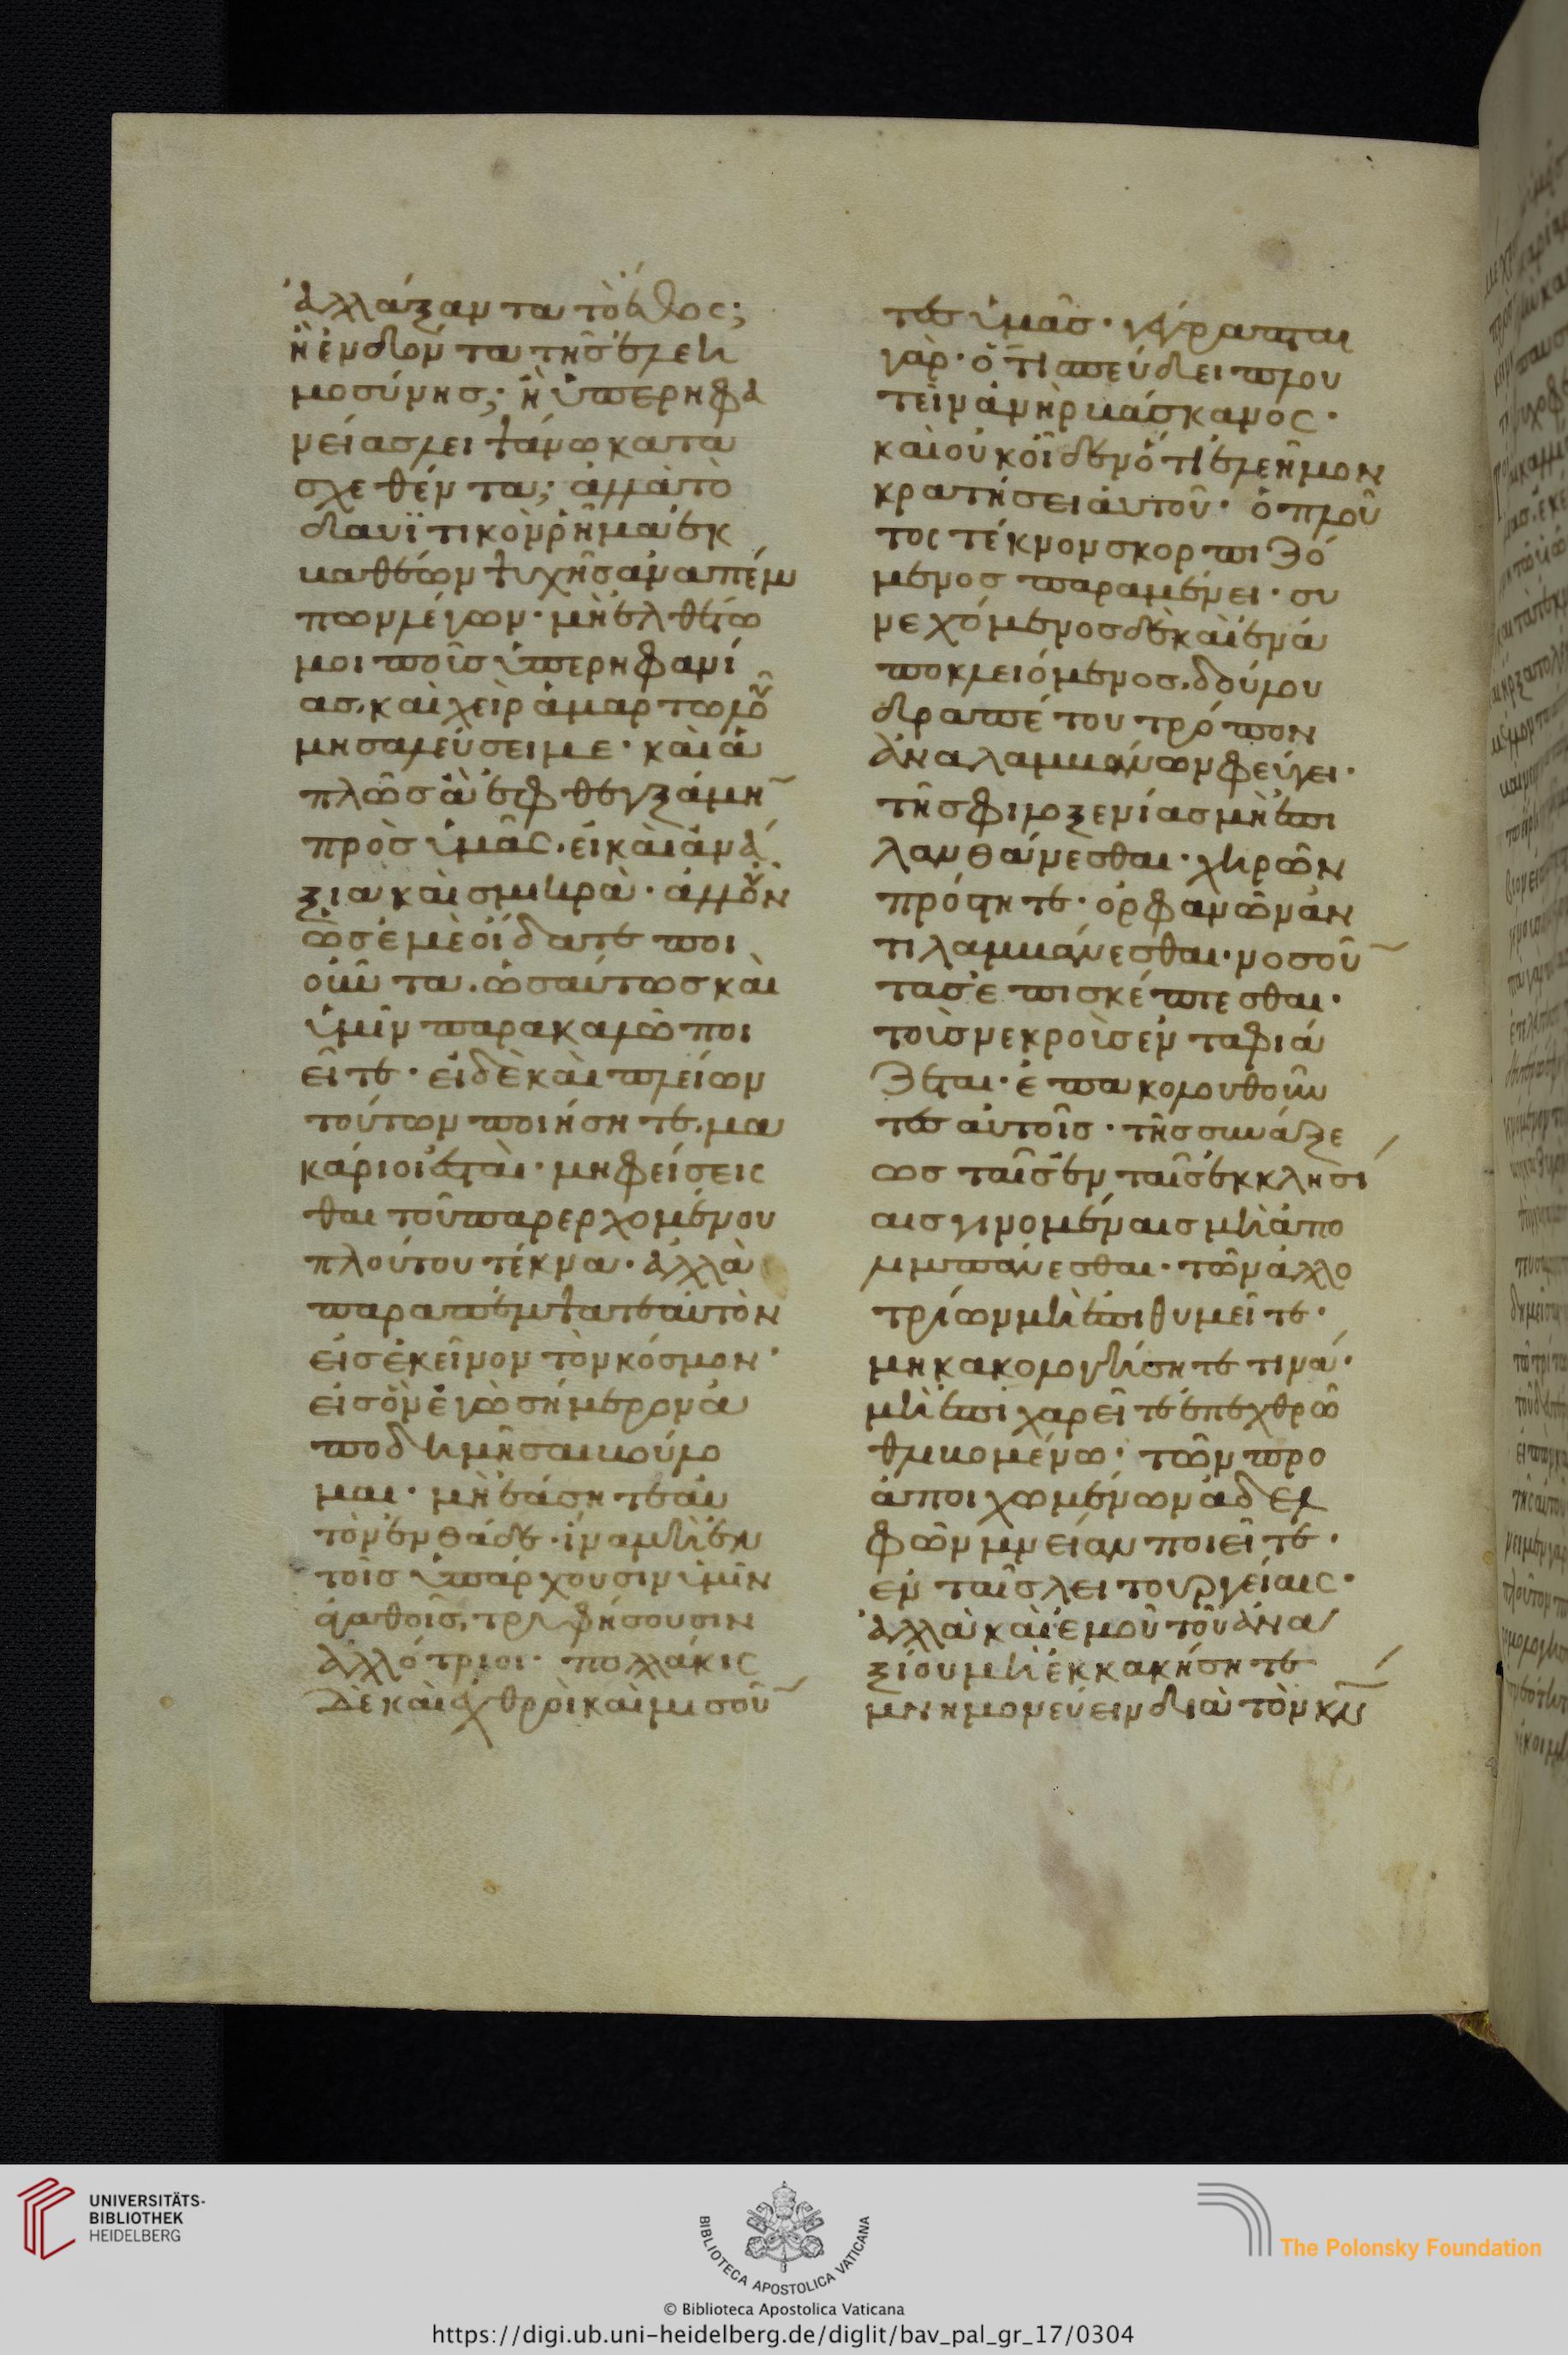 ἀλλάξαντα τὸ ἔλεος;
ἢ ἐνδιόντα τῆς ἐλεη
μοσύνης; ἢ ὑπερηφα
νείας λειψάνω κατα
σχεθέντα; ἀλλὰ τὸ
δαυϊτικὸν ῥῆμα ἐκ
βαθέων ψυχῆς ἀναπέμ
πων λέγων· μὴ ἐλθέτω
μοι ποῦς ὑπερηφανί
ας, καὶ χεὶρ ἁμαρτωλοῦ
μὴ σαλεύσει με· καὶ ἁ
πλῶς ἃ ἐφθεγξάμην
πρὸς ὑμᾶς. εἰ καὶ ἀνά
ξια καὶ σμικρὰ· ἀλλ' οὖν
ὡς ἐμὲ οἴδατε ποι
οῦντα. ὡσαύτως καὶ
ὑμῖν παρακαλῶ ποι
εῖτε· εἰ δὲ καὶ πλείων
τούτων ποιήσητε, μα
κάριοι ἐσταὶ· μὴ φείσεισ
θαι τοῦ παρερχομένου
πλούτου τέκνα· ἀλλὰ
παραπέμψατε αὐτὸν
εἰς ἐκεῖνον τὸν κόσμον·
εἰς ὃν ἐγὼ σήμερον ἀ
ποδημῆσαι βούλο
μαι· μὴ ἐάσητε αὐ
τὸν ἐνθάδε· ἵνα μὴ ἐν
τοῖς ὑπάρχουσιν ὑμῖν
ἀγαθοῖς, τρυφήσουσιν
ἀλλότριοι· πολλάκις
δὲ καὶ ἐχθροὶ καὶ μισοῦν
τες ὑμᾶς· γέγραπται
γὰρ· ὅτι σπεύδει πλου
τεῖν ἀνὴρ βάσκανος·
καὶ οὐκ οἶδεν ὅτι ἐλεήμων
κρατήσει αὐτοῦ· ὁ πλοῦ
τος τέκνον σκορπιζό
μενος παραμένει· συ
νεχόμενος δὲ καὶ ἐνα
ποκλειόμενος, δούλου
δραπέτου τρόπον
ἀναλαμβάνων φεύγει·
τῆς φιλοξενίας μὴ ἐπι
λανθάνεσθαι· χηρῶν
πρόστητε· ὀρφανῶν ἀν
τιλαμβάνεσθαι· νοσοῦν
τας ἐπισκέπτεσθαι·
τοὺς νεκροὺς ἐνταφιά
ζεται· ἐπακολουθοῦν
τες αὐτοῖς· τῆς συνάξε
ως ταῖς ἐν ταῖς ἐκκλησί
αις γινομέναις μὴ ἀπο
λιμπάνεσθαι· τῶν ἀλλο
τρίων μὴ ἐπιθυμεῖτε·
μὴ κακολογήσητε τινά·
μὴ ἐπιχαρεῖτε ἐπ' ἐχθρῶ
θλιβομένω· τῶν προ
αποιχωμένων ἀδελ
φῶν μνείαν ποιεῖτε·
ἐν ταῖς λειτουργείαις·
ἀλλὰ καὶ ἐμοῦ τοῦ ἀνα
ξίου μὴ ἐκκακήσητε
μνημονεύειν διὰ τὸν κν
UNIVERSITÄTS-
BIBLIOTHEK
HEIDELBERG
BIBLIOTECA APOSTOLICA VATICANA
The Polonsky Foundation
© Biblioteca Apostolica Vaticana
https://digi.ub.uni-heidelberg.de/diglit/bav_pal_gr_17/0304